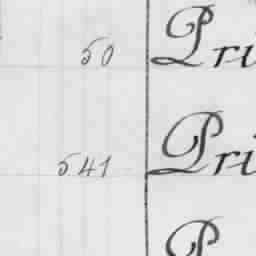 50 Pri
541 Pri
P